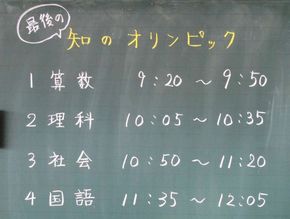 最後の
知のオリンピック
1 算数 9:20 〜 9:50
2 理科 10:05 〜 10:35
3 社会 10:50 〜 11:20
4 国語 11:35 〜 12:05